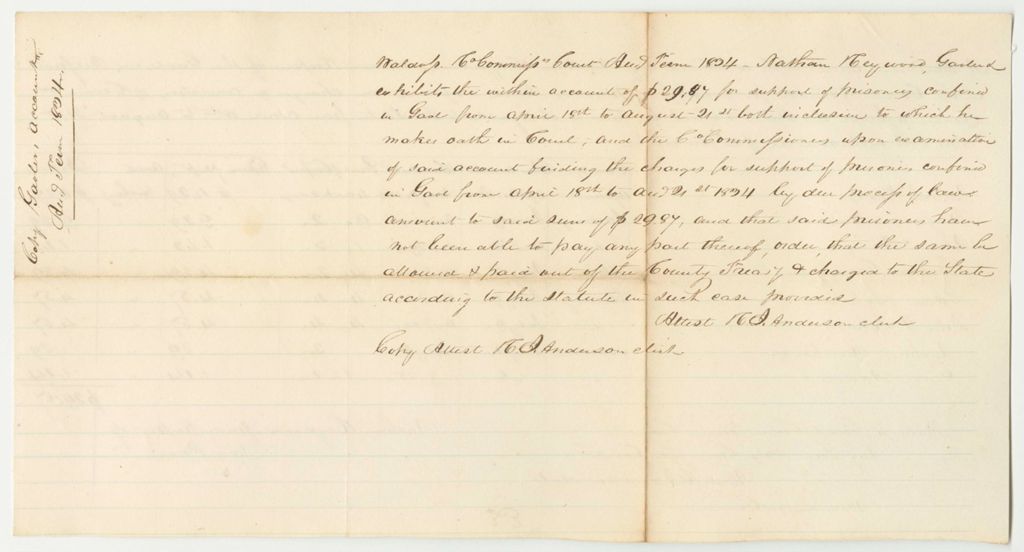 Copy Gaoler's account
Aug. Term 1824.
Waldo ss. Co Commissrs Court Aug Term 1824 - Nathan Heywood, Gaoler
exhibits the within account of $29,87 for support of prisoners confined
in Gaol from april 18th to august 21st both inclusive to which he
makes oath in Court, and the Co Commissioners upon examination
of said account finding the charges for support of prisoners confined
in Gaol from april 18th to aug 21st 1824 by due process of law
amount to said sum of $29,87, and that said prisoners have
not been able to pay any part thereof, order, that the same be
allowed & paid out of the County Treasy & charged to the State
according to the statute in such case provided
Attest H. J. Anderson clerk
Copy Attest H. J. Anderson clerk